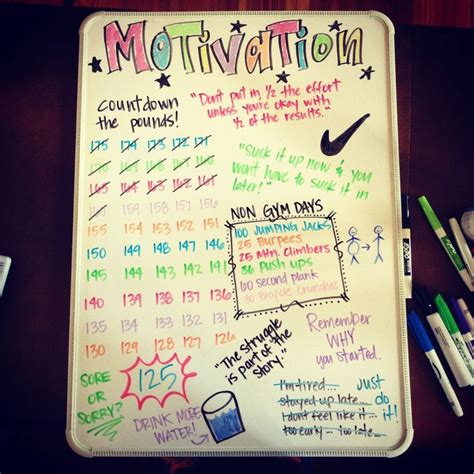 MOTIVATION
COUNTDOWN
THE POUNDS!
175 174 173 172 171
170 169 168 167 166
165 164 163 162 161
160 159 158 157 156
155 154 153 152 151
150 149 148 147 146
145 144 143 142 141
140 139 138 137 136
135 134 133 132 131
130 129 128 127 126
"Don't put in 1/2 the effort
unless you're okay with
1/2 of the results."
"Suck it up now & you
won't have to suck it in
later!"
NON GYM DAYS
100 JUMPING JACKS
25 Burpees
25 Mtn. Climbers
PUSH UPS
60 second plank
30 Bicycle Crunches
"The struggle
is part of the
story."
Remember
WHY
you started.
SORE
OR
SORRY?
125
DRINK MORE
WATER!
I'm tired...
stayed up late...
I don't feel like it...
too early... too late...
just
do
it!